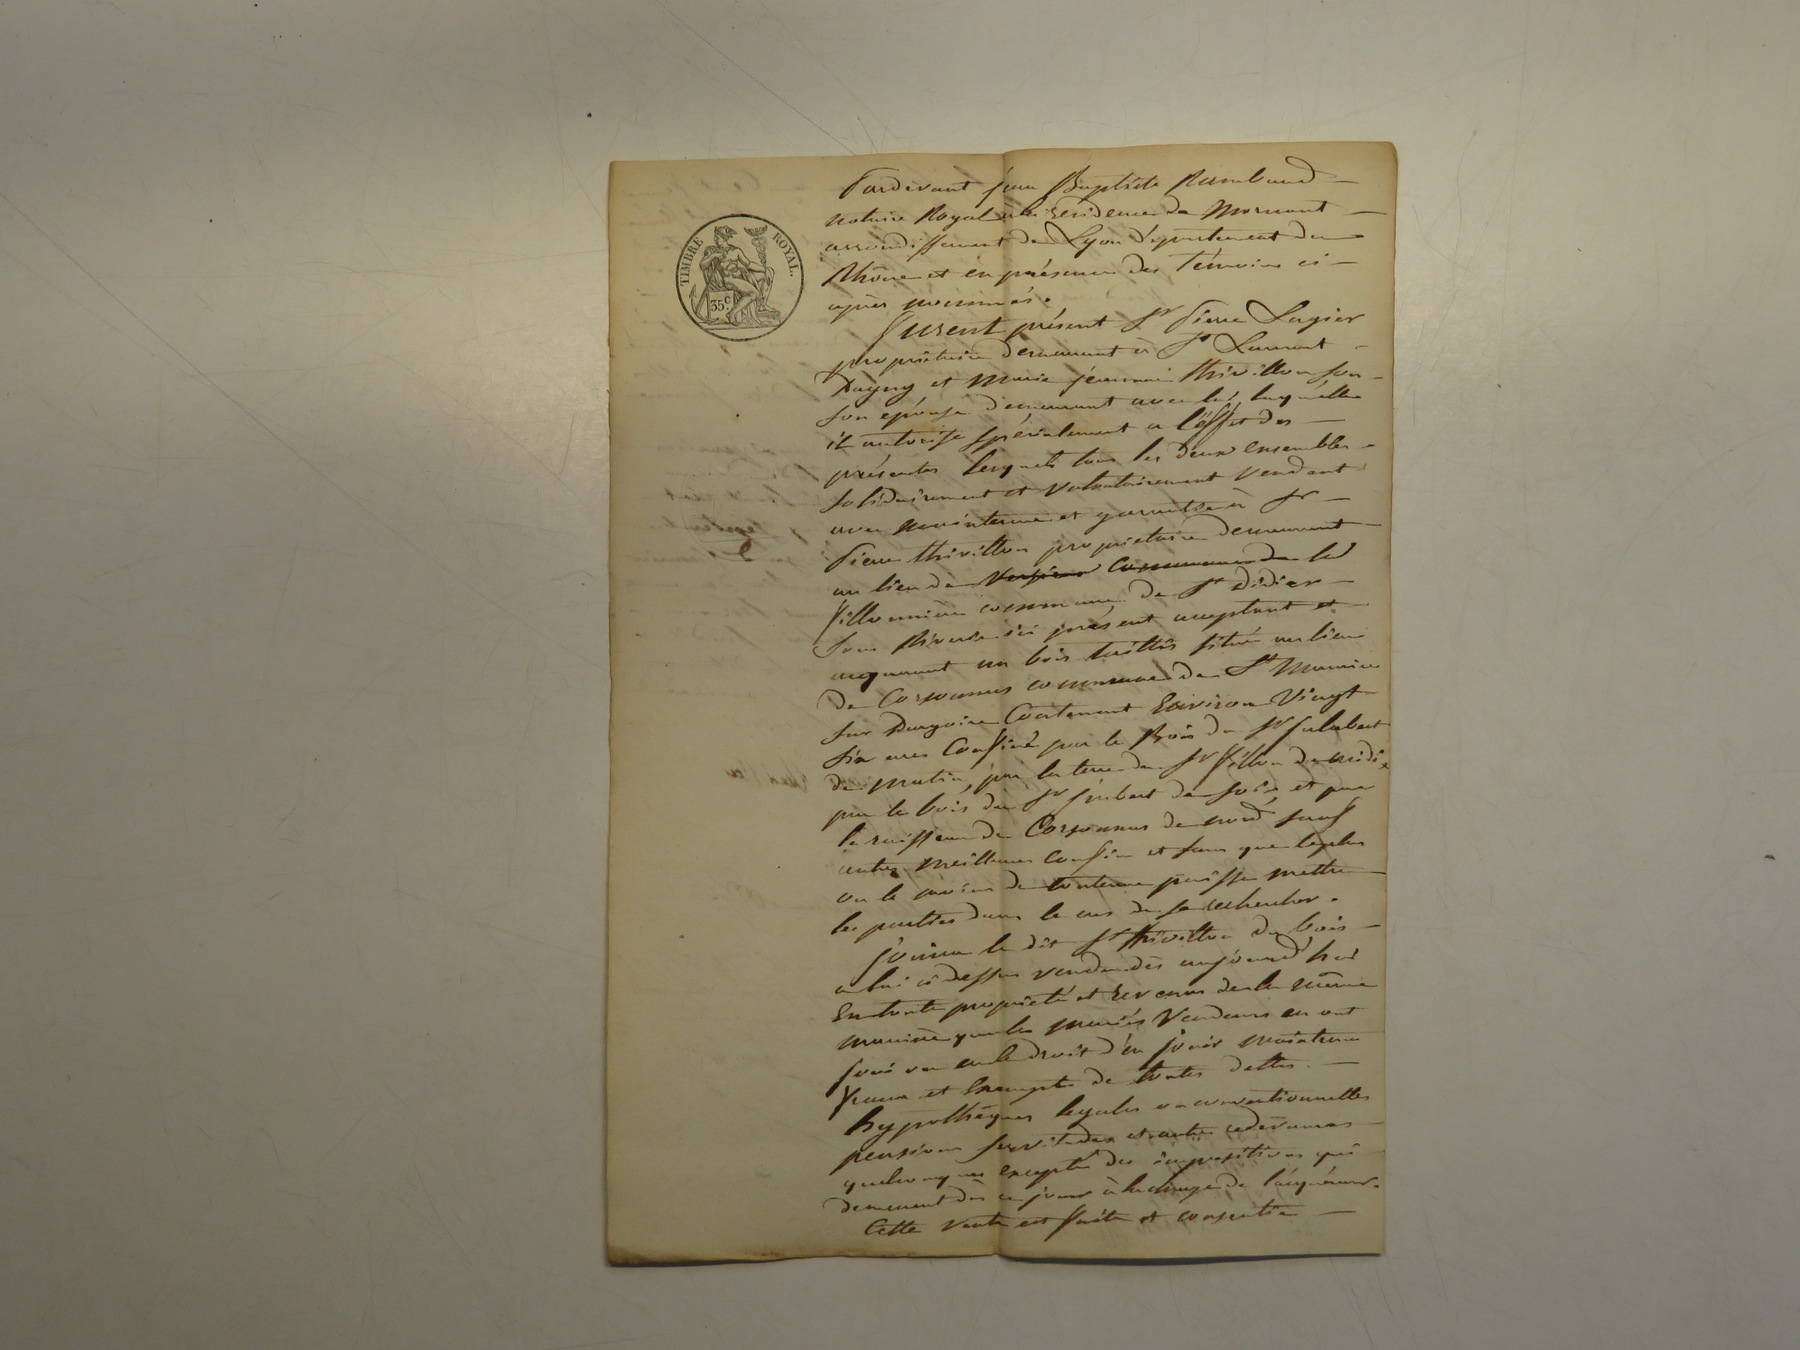 TIMBRE ROYAL.
35.c
Pardevant jean Baptiste Rambaud
notaire Royal à la résidence de Mornant
arrondissement de Lyon département du
Rhône et en présence des témoins ci-
après nommés.
Furent présent Sr Pierre Lagier
propriétaire demeurant à St Laurent
Dagny et Marie jeanne thivillon son
son epouse demeurant avec lui, laquelle
il autorise spécialement a l'effet des
présentes lesquels tous les deux ensembles
solidairement et volontairement vendent
avec maintenue et garantie à Sr
Pierre thivillon propriétaire demeurant
au lieu de Commune de la
fillonnière commune de St Didier
sous Riverie ici présent acceptant et
acquerant un bois taillis situé au lieu
de Corsonnas commune de St Maurice
sur Dargoire Contenant Environ Vingt
six ares Confiné par le Bois du Sr
de matin, par la terre du Sr fillon de midi,
par le bois du Sr de soir, et par
le ruisseau de Corsonnas de nord sauf
autres meilleurs confins et sans que le plus
ou le moins de contenue puisse mettre
les parties dans le cas de se rechercher.
jouira le dit Sr thivillon du bois
a lui ci dessus vendu dès aujourd'hui
En toute propriété et revenus de la même
manière que les mariés Vendeurs en ont
joui ou eu le droit d'en jouir maintenu
franc et Exempt de toutes dettes
hypothèques legales ou conventionnelles
pensions servitudes et autres redevances
quelconques excepté des impositions qui
demeurent dès ce jour à la charge de l'acquéreur.
Cette vente est faite et consentie